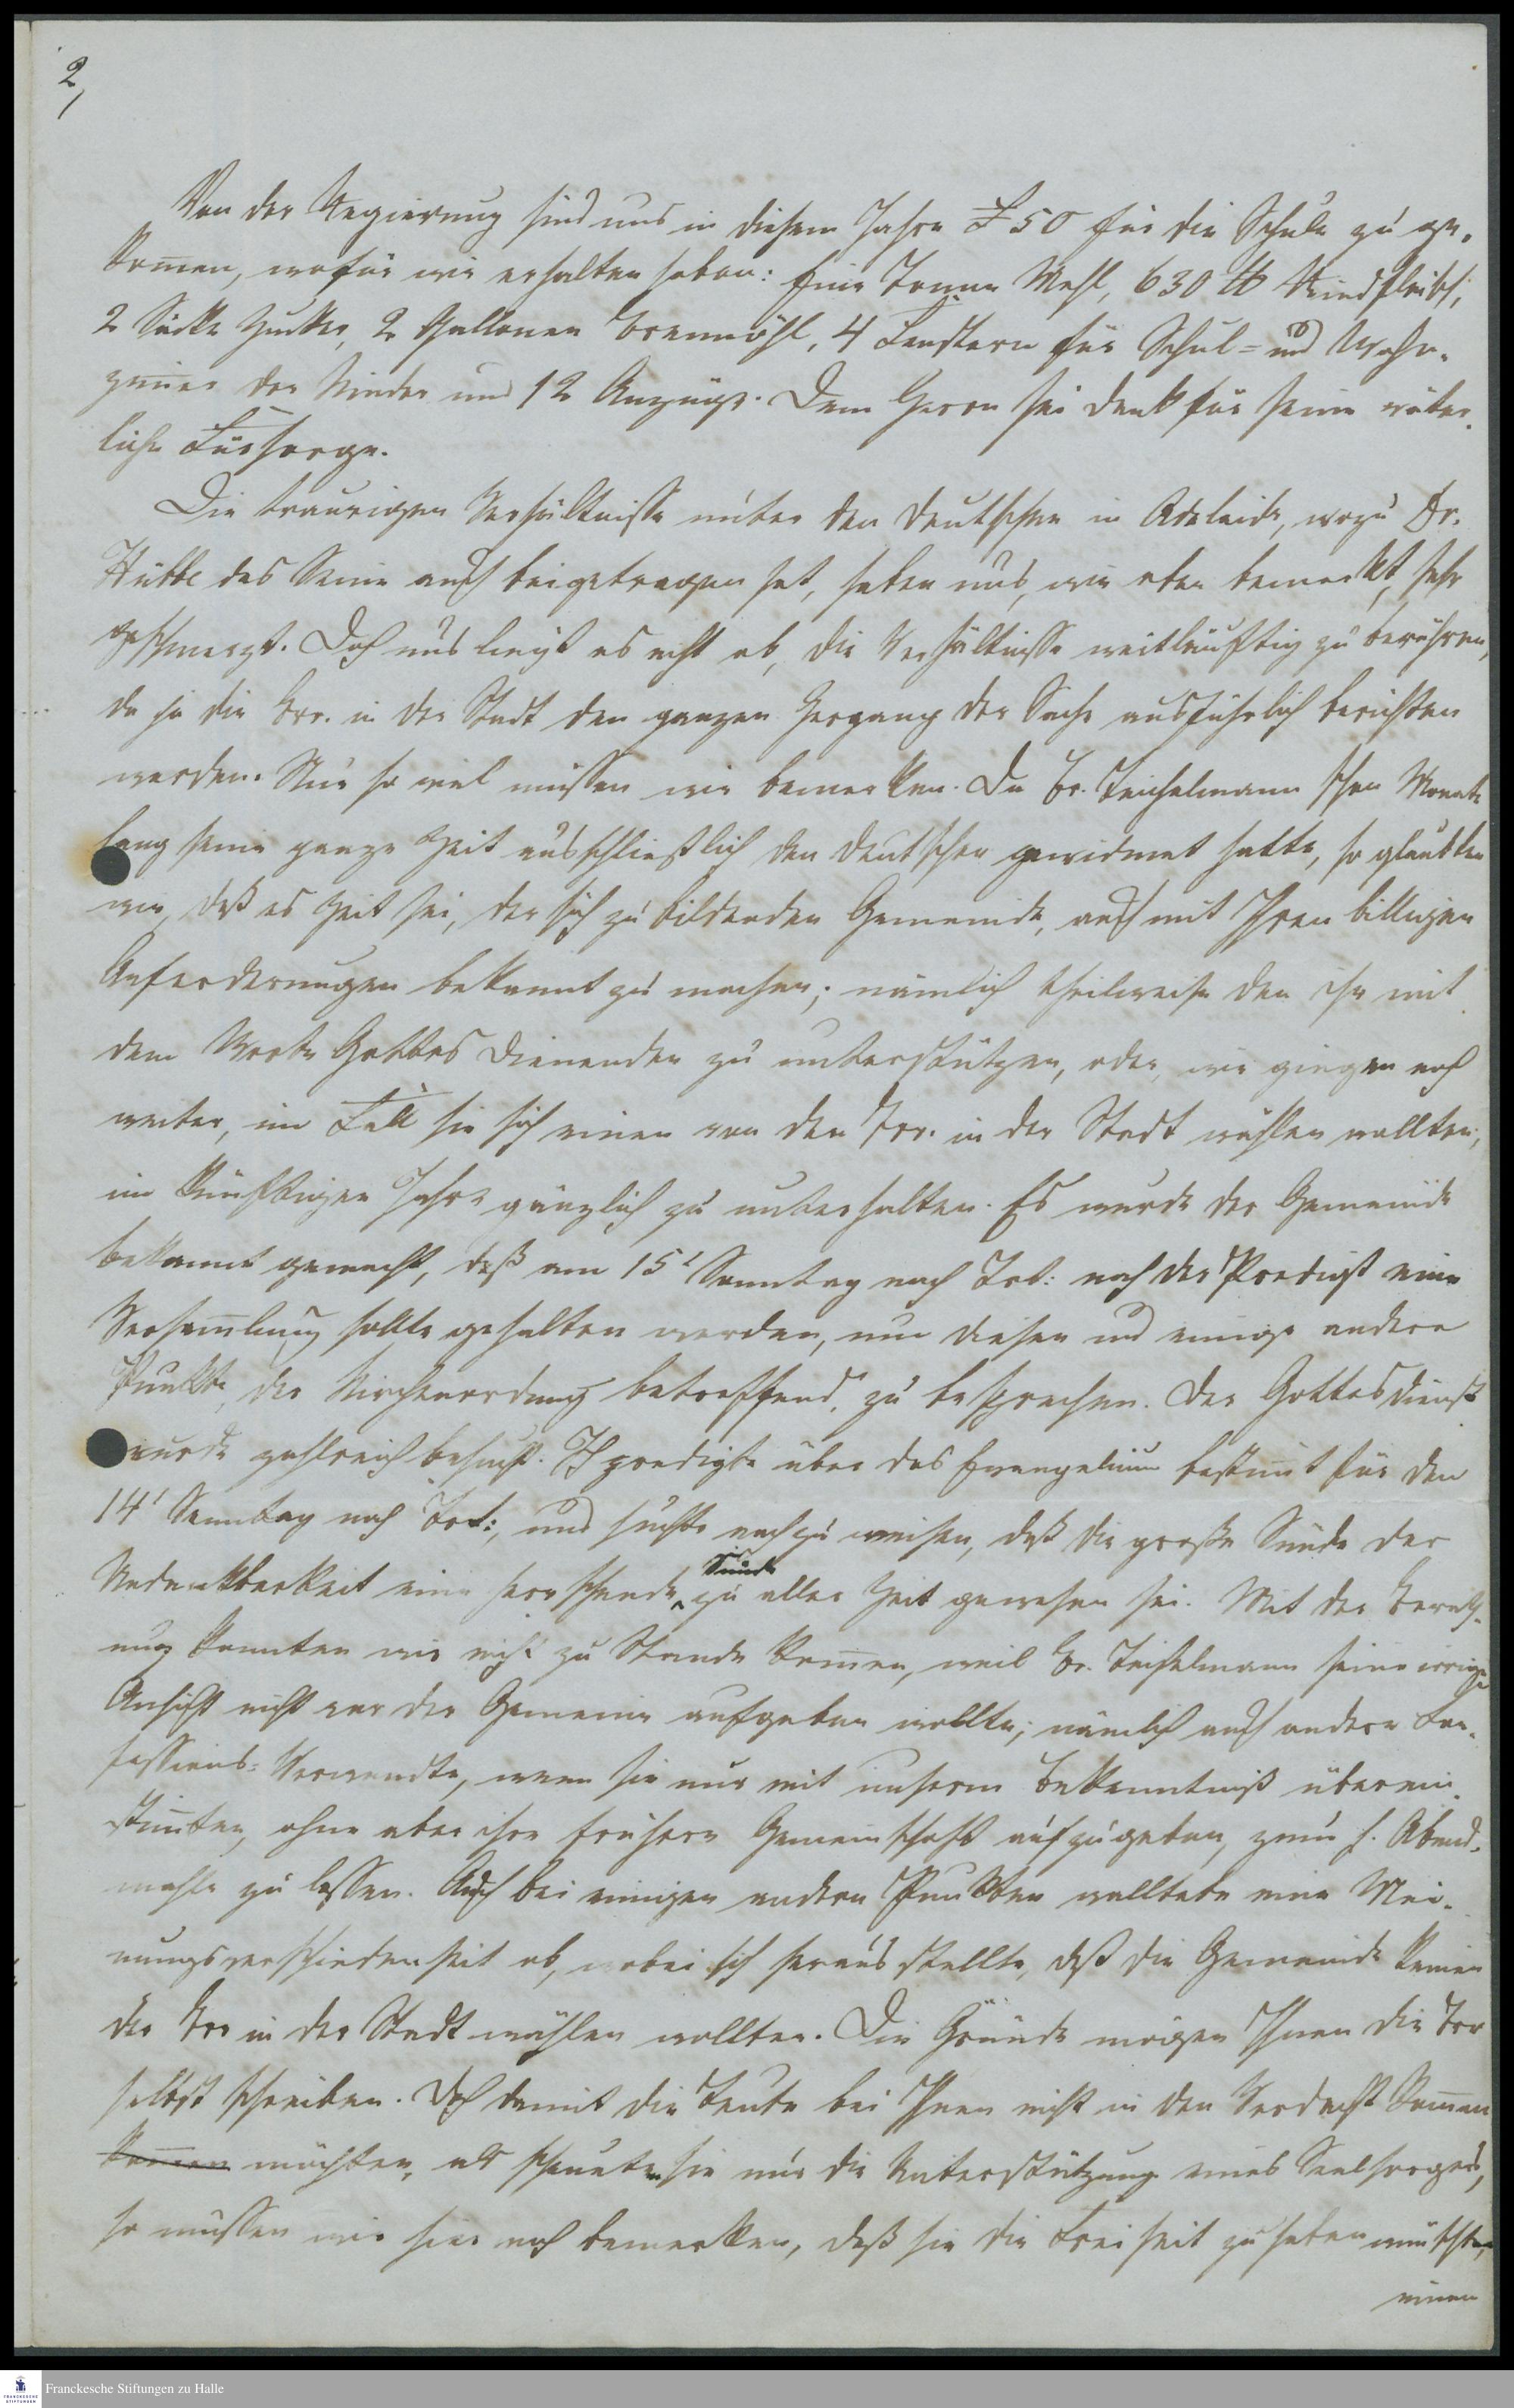 2,
Von der Regierung sind uns in diesem Jahre £ 50 für die Schule zu ge-
kom̅en, wofür wir erhalten haben: Eine Tonne Mehl, 630 ℔ Rindfleisch,
2 Säcke Zucker, 2 Gallonen Brennöhl, 4 Fenstern für Schul- und Wohn-
zim̅er der Kinder und 12 Anzüge. Dem Herrn sei Dank für seine väter-
liche Fürsorge.
Die traurigen Verhältnisse unter den Deutschen in Adelaide, wozu Dr.
Hübbe das Seine auch beigetragen hat, haben uns, wie oben bemerkt, sehr
geschmerzt. Doch uns liegt es nicht ob, die Verhältnisse weitläuftig zu berühren,
da ja die Brr. in der Stadt den ganzen Hergang der Sache ausführlich berichten
werden. Nur so viel müssen wir bemerken. Da Br. Teichelmann schon Monate
lang seine ganze Zeit ausschließlich den Deutschen gewidmet hatte, so glaubten
wir, daß es Zeit sei, der sich zu bildenden Gemeinde, auch mit Ihren billigen
Anforderungen bekannt zu machen; nämlich theilweise den ihr mit
dem Worte Gottes Dienenden zu unterstützen, oder, wir gingen noch
weiter, im Fall sie sich einen von den Brr. in der Stadt wählen wollten,
im künftigen Jahre gänzlich zu unterhalten. Es wurde der Gemeinde
bekannt gemacht, daß am 15' Sonntag nach Trt: nach der Predigt eine
Versam̅lung sollte gehalten werden, um diesen und einige andere
Punkte, die Kirchenordnung betreffend, zu besprechen. Der Gottesdienst
wurde zahlreich besucht. Ich predigte über das Evangelium bestim̅t für den
14' Sonntag nach Trt:, und suchte nachzuweisen, daß die große Sünde der
Undankbarkeit eine herrschende Sünde zu aller Zeit gewesen sei. Mit der Berath-
ung konnten wir nicht zu Stande kom̅en, weil Br. Teichelmann seine irrige
Ansicht nicht vor der Gemeine aufgeben wollte; nämlich auch andere Con-
fessions-Verwandte, wenn sie nur mit unserm Bekenntniß überein-
stim̅ten, ohne aber ihre frühere Gemeinschaft aufzugeben, zum h. Abend-
mahle zu lassen. Auch bei einigen andern Punkten walltete eine Mei-
nungsverschiedenheit ob, wobei sich herausstellte, daß die Gemeinde keinen
der Brr in der Stadt wählen wollten. Die Gründe mögen Ihnen die Brr
selbst schreiben. Doch damit die Leute bei Ihnen nicht in den Verdacht kom̅en
kom̅en möchten, als scheuten sie nur die Unterstützung eines Seelsorgers,
so müssen wir hier noch bemerken, daß sie die Freiheit zu haben wünschten,
einen
Franckesche Stiftungen zu Halle